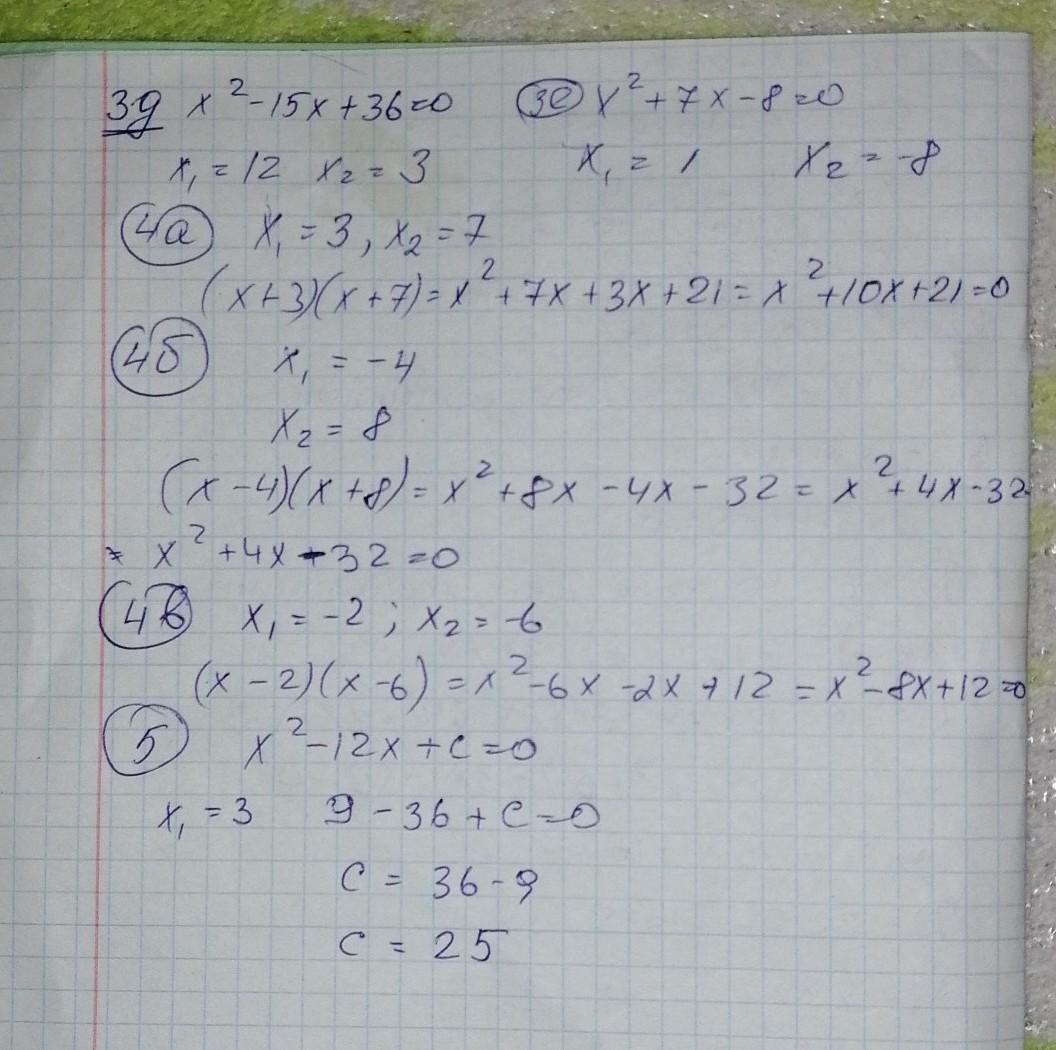 3д x² - 15x + 36 = 0 3е x² + 7x - 8 = 0
x₁ = 12 x₂ = 3 x₁ = 1 x₂ = -8
4а x₁ = 3, x₂ = 7
(x+3)(x+7) = x² + 7x + 3x + 21 = x² + 10x + 21 = 0
4б x₁ = -4
x₂ = 8
(x - 4)(x + 8) = x² + 8x - 4x - 32 = x² + 4x - 32
= x² + 4x - 32 = 0
4в x₁ = -2 ; x₂ = -6
(x - 2)(x - 6) = x² - 6x - 2x + 12 = x² - 8x + 12 = 0
5 x² - 12x + c = 0
x₁ = 3 9 - 36 + c = 0
c = 36 - 9
c = 25